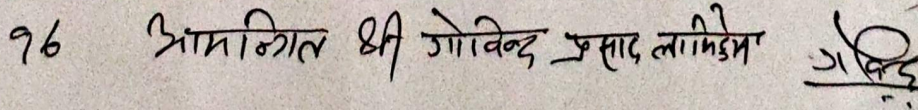 १६ आमन्त्रित श्री गोविन्द प्रसाद लामिछाने गोविन्द